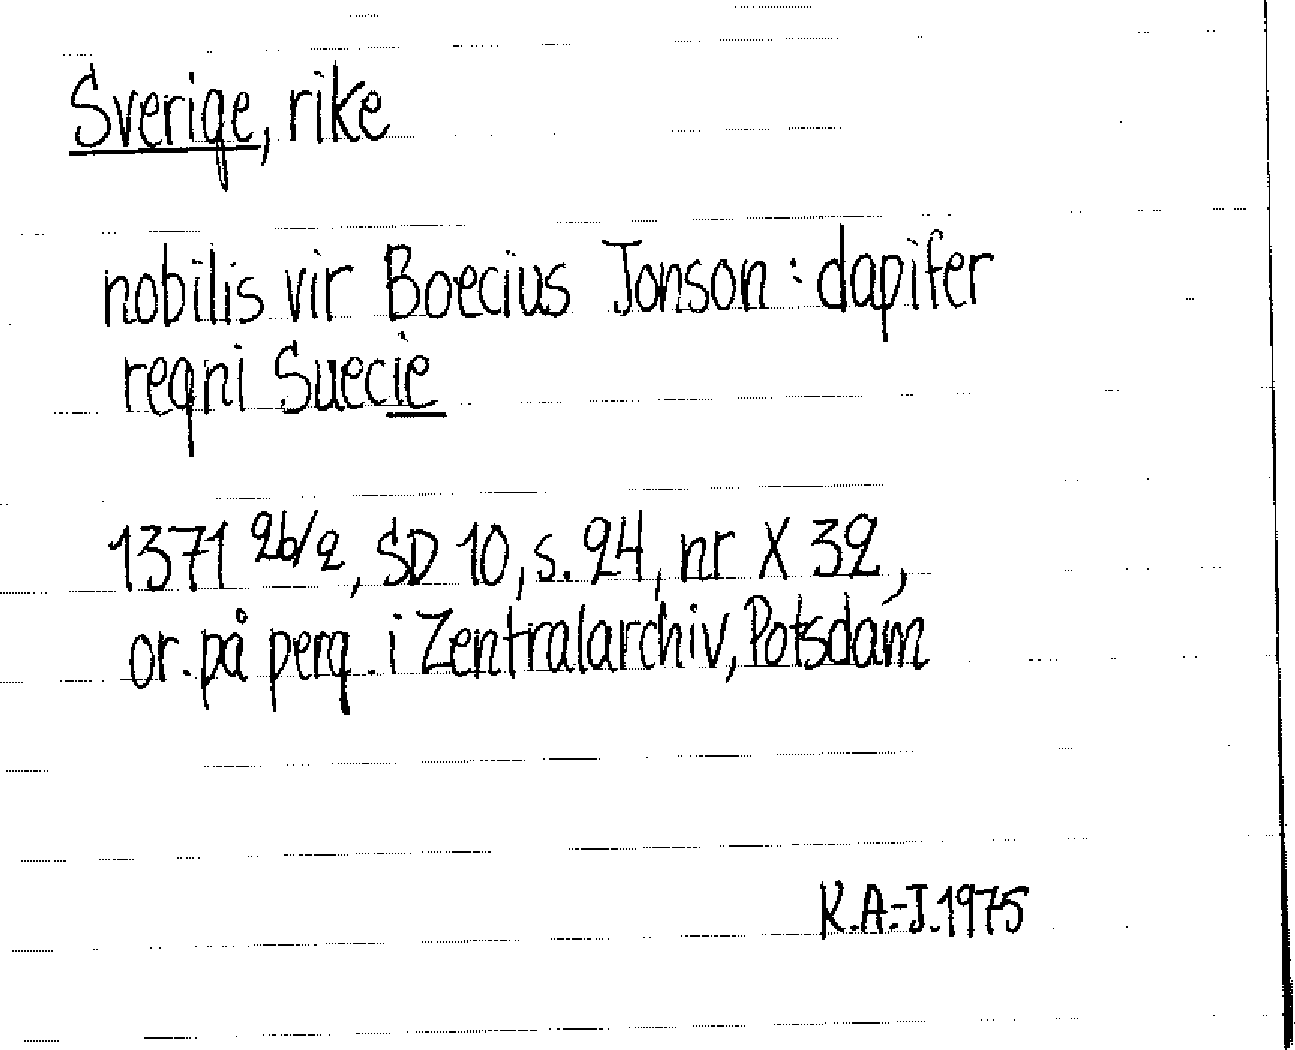 Sverige, rike
nobilis vir Boecius Jonson : dapifer
regni Suecie
1371 26/2, SD 10, s. 24, nr X 32,
or. på perg. i Zentralarchiv, Potsdam
K.A.-J. 1975